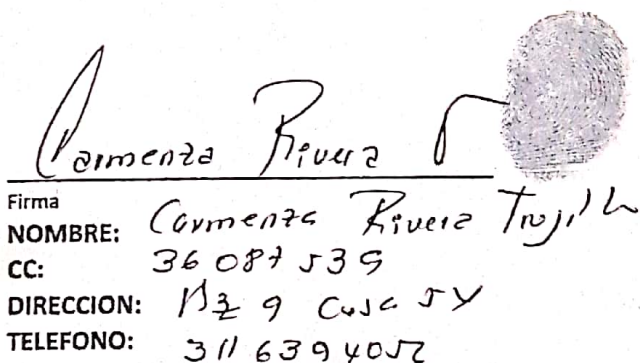 Carmenza Rivera T
Firma
NOMBRE: Carmenza Rivera Trujillo
CC: 36 087 539
DIRECCION: Mz 9 Casa 54
TELEFONO: 311 6394052